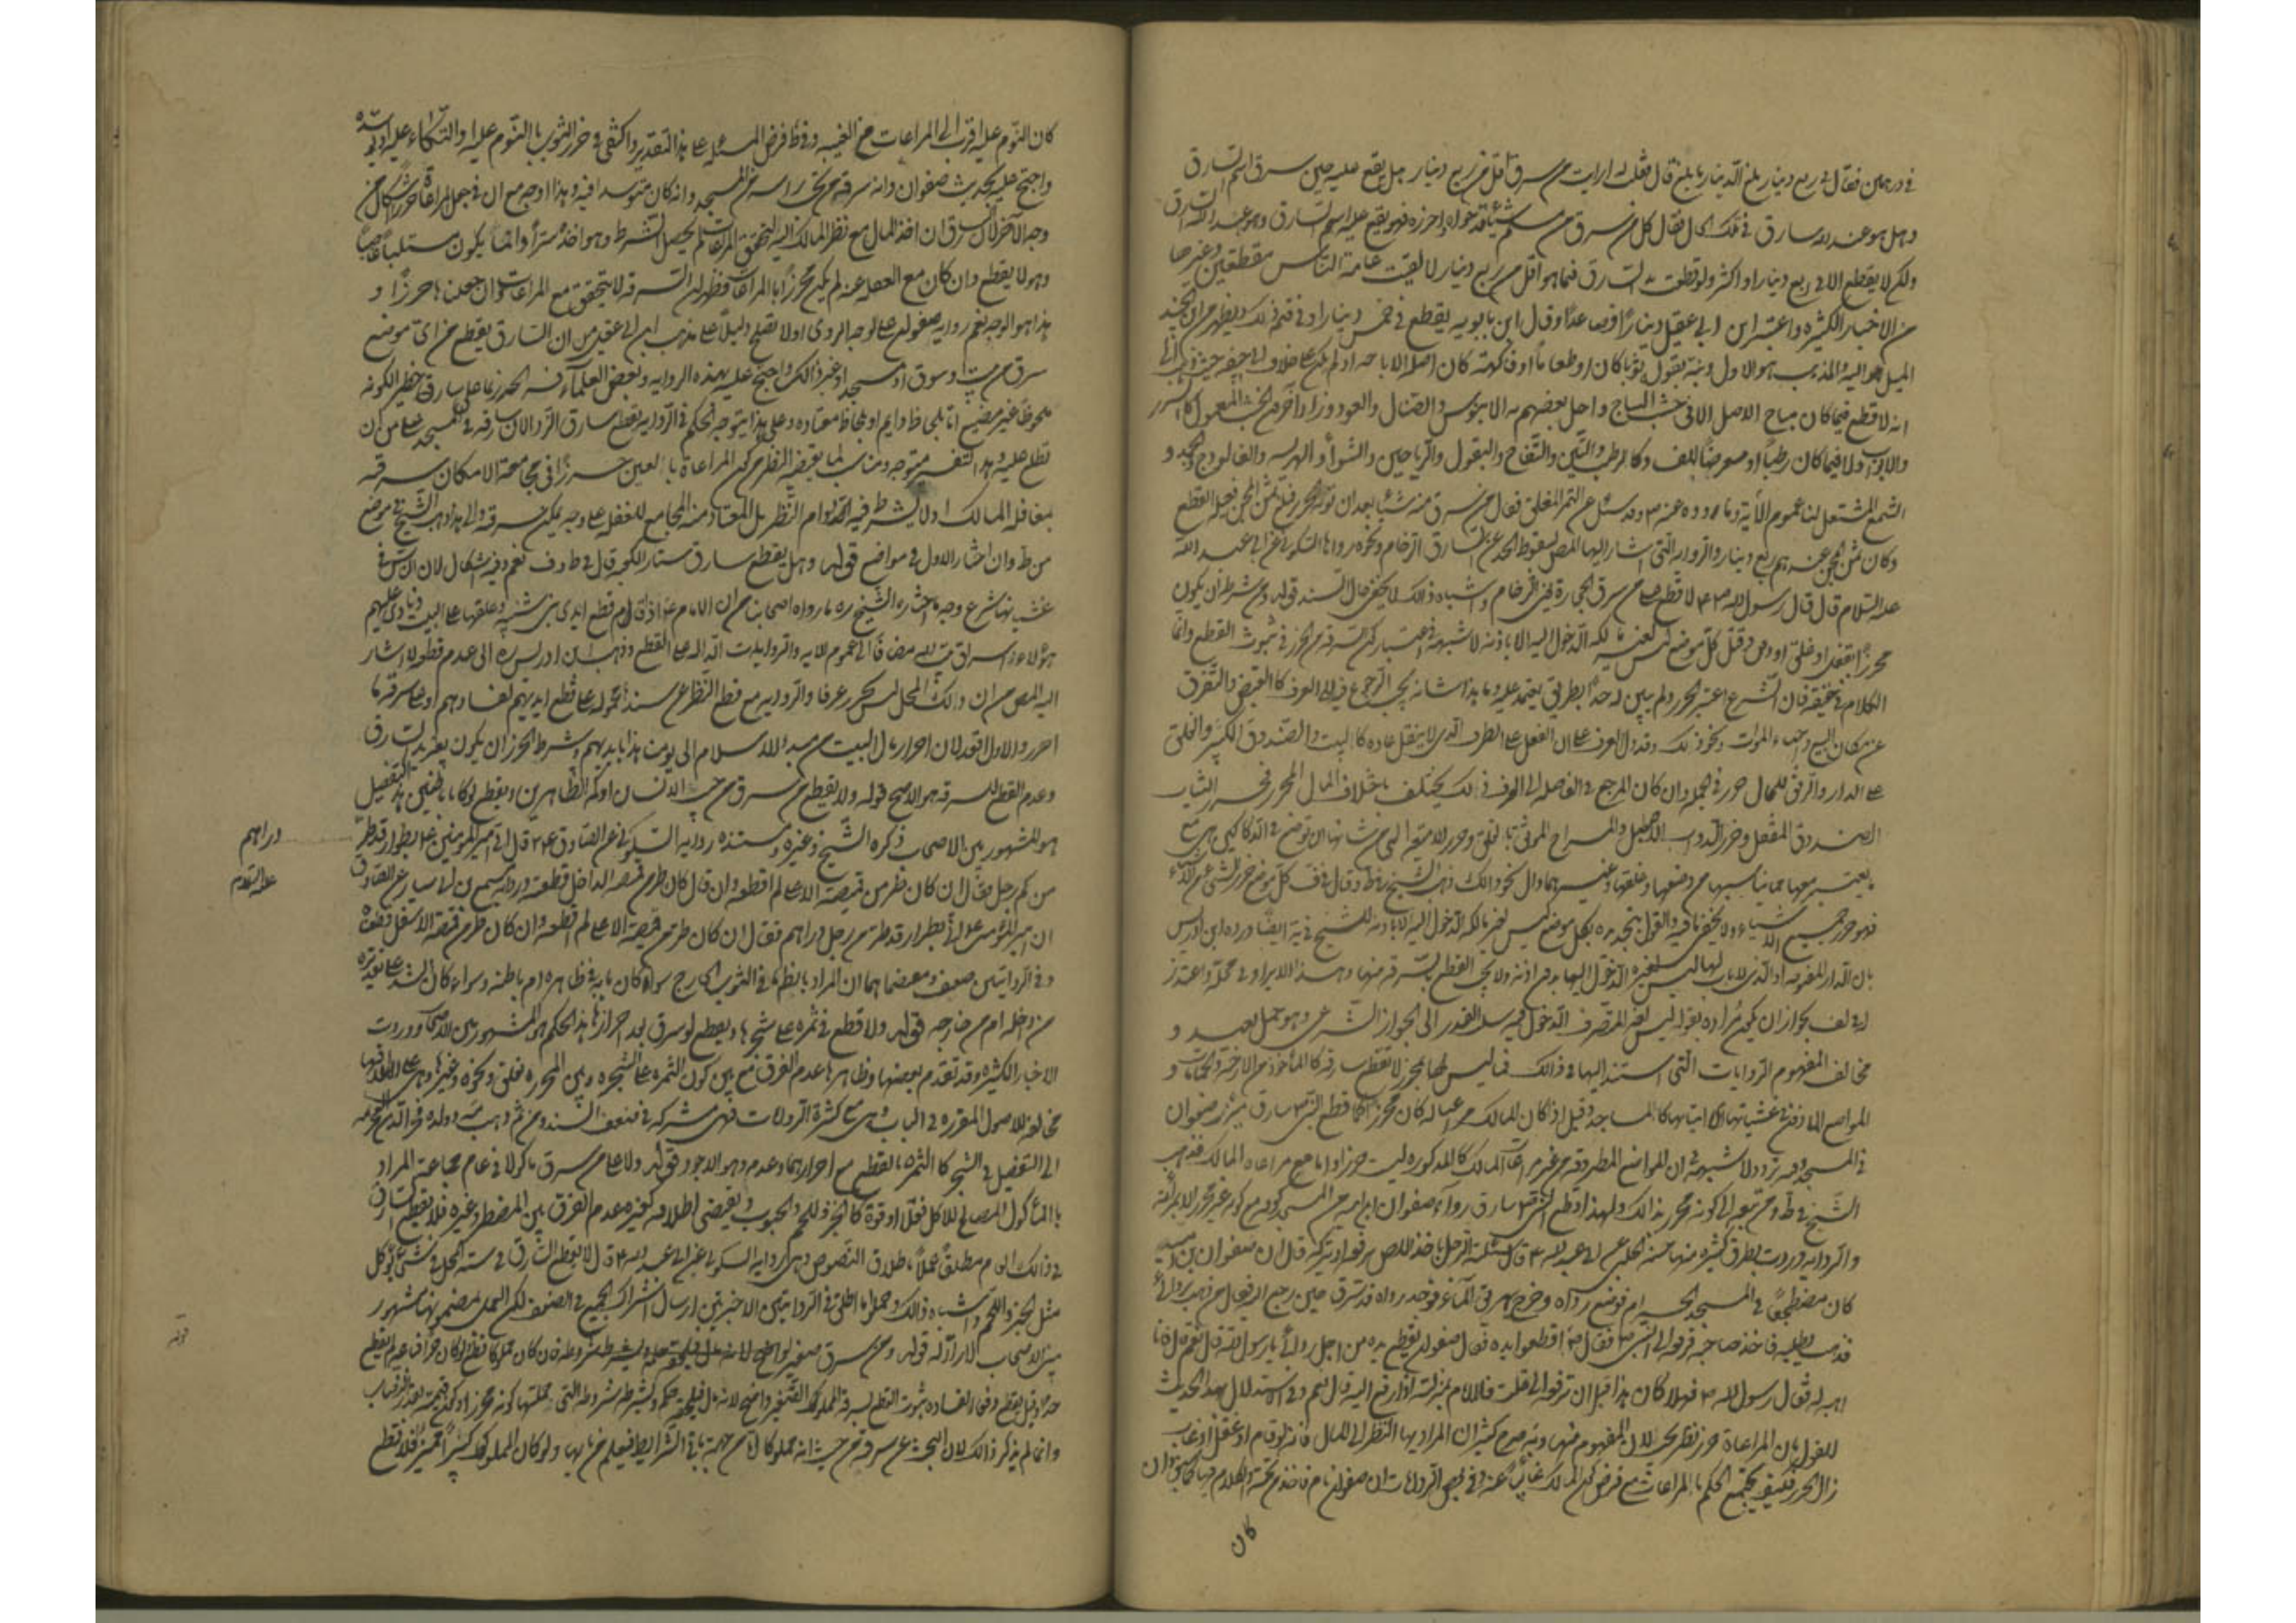 في درهمين فقال في ربع دينار بلغ الدينار ما بلغ قال فقلت له ارايت من سرق اقل من ربع دينار هل يقع عليه حين سرق اسم السارق
وهل هو عند الله سارق في تلك الحال فقال كل من سرق من مسلم شيئا قد حواه واحرزه فهو يقع عليه اسم السارق وهو عند الله السارق
ولكن لا يقطع الا في ربع دينار او اكثر ولو قطعت يد السارق فيما هو اقل من ربع دينار لالقيت عامة الناس مقطعين وغيرها
من الاخبار الكثيرة واعتبر ابن ابي عقيل دينارا فصاعدا وقال ابن بابويه يقطع في خمس دينار او في قيمة ذلك ويظهر من ابن الجنيد
الميل اليه والمذهب هو الاول ونبه بقوله ثوبا كان او طعاما او فاكهة كان اصله الاباحة او لم يكن على خلاف ابي حنيفة حيث ذهب الى
انه لا قطع فيما كان مباح الاصل الا في خشب الساج واحل بعضهم به الابنوس والصندل والعود وزاد آخر منهم الخشب المعمول كالسرر
والابواب ولا فيما كان رطبا او معرضا للفساد كالرطب والتين والتفاح والبقول والرياحين والشواء والهريسة والفالوذج والجمد و
الشمع المشتعل لنا عموم الآية وما ورد عنه وقد سئل عن الثمر المعلق فقال من سرق منه شيئا بعد ان يؤيه الجرين فبلغ ثمن المجن فعليه القطع
وكان ثمن المجن عندهم ربع دينار والرواية التي اشار اليها المصنف بسقوط الحد عن سارق الرخام ونحوه رواها السكوني عن ابي عبد الله
عليه السلام قال قال رسول الله لا قطع على من سرق الحجارة يعني الرخام واشباه ذلك ولا يخفى حال السند قوله ومن شرطه ان يكون
محرزا بقفل او غلق او دفن وقيل كل موضع ليس لغير مالكه الدخول اليه الا باذنه لا شبهة في اعتبار كون السرقة من الحرز في ثبوت القطع وانما
الكلام في حقيقته فان الشرع اعتبر الحرز ولم يبين له حدا بطريق يعتمد عليه وما هذا شانه يجب الرجوع فيه الى العرف كالقبض والتفرق
عن مكان البيع واحياء الموات ونحو ذلك وقد دل العرف على ان القفل على الظرف الذي لا ينقل عادة كالبيت والصندوق الكبير والغلق
على الدار والدفن للمال حرز في الجملة وان كان المرجع في الفاصلة الى العرف ذلك يختلف باختلاف المال المحرز فحرز الثياب
الصندوق المقفل وحرز الدواب الاصطبل والمراح الموثق بالغلق وحرز الامتعة التي من شانها ان توضع في الدكاكين هي مع
ما يعتبر معها مما يناسبها من وضعها وغلقها وغيرهما والى نحو ذلك ذهب الشيخ في ط وقال في ف كل موضع حرز لشيء من الاشياء
فهو حرز جميع الاشياء ولا يخفى ما فيه والقول بتحديده بكل موضع ليس لغير مالكه الدخول اليه الا باذنه للشيخ في ية ايضا ورده ابن ادريس
بان الدار المفتوحة او الذي لا باب لها ليس لغيره الدخول اليها من اذنه ولا يجب القطع بسرقة منها وهذا الايراد في محله واعتذر
له في لف بجواز ان يكون مراده بقوله ليس لغير المتصرف الدخول فيه سلب القدر الى الجواز الشرعي وهو حمل بعيد و
مخالف المفهوم الروايات التي استند اليها في ذلك فما ليس لها بحرز لا تقطع سارقه كالمأخوذ من الارحية والحمامات و
المواضع الماذون في غشيانها اي اتيانها كالمساجد وقيل اذا كان المالك مراعيا له كان محرزا كما قطع النبي سارق ميزر صفوان
في المسجد وفيه تردد لا شبهة في ان المواضع المطروقة من غير مراعات المالك كالمذكورة ليست حرزا واما مع مراعاة المالك فذهب
الشيخ في ط ومن تبعه الى كونه محرزا بذلك ولهذا قطع النبي سارق رداء صفوان ابن امية من المسجد مع كونه غير محرز الا بمراعاته
والرواية وردت بطرق كثيرة منها حسنة الحلبي عن ابي عبد الله قال سئلته الرجل ياخذ اللص يرفعه او يتركه قال ان صفوان بن امية
كان مضطجعا في المسجد الحرام فوضع رداه وخرج يهريق الماء فوجد رداه قد سرق حين رجع اليه فقال من ذهب بردائي
فذهب يطلبه فاخذ صاحبه فرفعه الى النبي فقال اقطعوا يده فقال صفوان يقطع يده من اجل ردائي يا رسول الله قال نعم قال فانا
اهبه له فقال رسول الله فهلا كان هذا قبل ان ترفعه الي قلت فالامام بمنزلته اذا رفع اليه قال نعم وفي استدلال بهذا الحديث
للقول بان المراعاة حرز نظر بين لان المفهوم منها وبه صرح كثير ان المراد بها النظر الى المال فانه لو نام او غفل او غاب
زال الحرز فكيف يجتمع الحكم بالمراعات مع فرض كون المالك غائبا عنه وفي بعض الروايات ان صفوان نام فاخذ من تحته والكلام فيها كما سبق وان
كان
كان النوم عليه اقرب الى المراعات مع الغيبة وفي ط فرض المسئلة على هذا التقدير واكتفى في حرز الثوب بالنوم عليه او الاتكاء عليه او توسده
واحتج عليه بحديث صفوان وانه سرقه من تحت راسه في المسجد وانه كان متوسدا فيه وهذا اوجه مع ان في جعل المراعاة حرزا اشكال من
وجه الآخر لان السارق ان اخذ المال مع نظر المالك اليه لتحقق المراعات لم يحصل الشرط وهو اخذه سترا وانما يكون مستلبا غاصبا
وهو لا يقطع وان كان مع الغفلة عنه لم يكن محرزا بالمراعات فظهر ان السرقة لا يتحقق مع المراعات وان جعلناها حرزا و
هذا هو الوجه نعم رواية صفوان على الوجه المروي اولا تصلح دليلا على مذهب ابن ابي عقيل من ان السارق يقطع من اي موضع
سرق من بيت او سوق او مسجد او غير ذلك واحتج عليه بهذه الرواية وبعض العلماء فسر الحرز بما على سارقه خطر لكونه
ملحوظا غير مضيع اما بلحاظ دايم او بلحاظ معتاده وعلى هذا يتوجه الحكم في الرواية بقطع سارق الرداء لان سارقه في المسجد على خطر من ان
يطلع عليه وهذا التفسير متوجه ومناسب لما يقتضيه النظر من كون المراعاة بالعين حرزا في مجامعة الامكان سرقته
بمغافلة المالك ولا يشترط فيه دوام النظر بل المعتاد منه المجامع للغفلة على وجه يمكن سرقته والى هذا ذهب الشيخ في موضع
من ط وان اختار الاول في مواضع قوله وهل يقطع سارق ستار الكعبة قال في ط وف نعم وفيه اشكال لان الناس في
غشيانها شرع وجه ما اختاره الشيخ ره ما رواه اصحابنا من ان الامام ع اذا قام قطع ايدي بني شيبة وعلقها على البيت ونادى عليهم
هؤلاء سراق الله مضافا الى عموم الآية والروايات الدالة على القطع وذهب ابن ادريس ره الى عدم قطعه لما اشار
اليه المصنف من ان ذلك المحل ليس بحرز عرفا والرواية مع قطع النظر عن سندها محمولة على قطع ايديهم لفسادهم او على سرقة ما
احرز والاول اقعد لان احراز مال البيت من مبدء الاسلام الى يومنا هذا بايديهم وشرط الحرز ان يكون بغير يد السارق
وعدم القطع للسرقة هو الاصح قوله ولا يقطع من سرق من جيب الانسان او كمه الظاهرين ويقطع لو كانا باطنين هذا التفصيل
هو المشهور بين الاصحاب ذكره الشيخ وغيره ومستنده رواية السكوني عن الصادق قال اتي امير المؤمنين بطرار قد طر
من كم رجل فقال ان كان طر من قميصه الاعلى لم اقطعه وان كان طر من قميصه الداخل قطعته ورواية مسمع بن ابي سيار عن الصادق
ان امير المؤمنين اتي بطرار قد طر من رجل دراهم فقال ان كان طر من قميصه الاعلى لم اقطعه وان كان طر من قميصه الاسفل قطعته
وفي الروايتين ضعف ومقتضاهما ان المراد بالظاهر ما في الثوب الخارج سواء كان بابه في ظاهره ام باطنه وسواء كان الشد على تقديره
من داخله ام من خارجه قوله ولا قطع في ثمره على شجرها ويقطع لو سرق بعد احرازها هذا الحكم هو المشهور بين الاصحاب ووردت
الاخبار الكثيرة وقد تقدم بعضها وظاهرها عدم الفرق بين كون الثمرة على الشجرة وبين المحرزة بغلق ونحوه وغيرها وهي على اطلاقها
مخالفة للاصول المقررة في الباب وهي مع كثرة الروايات فهي مشتركة في ضعف السند ومن ثم ذهب العلامة وولده فخر الدين
الى التفصيل في الشجر كالثمرة بالقطع مع احرازهما وعدمه وهو الاجود قوله ولا على من سرق ماكولا في عام مجاعة المراد
بالمأكول الصالح للاكل فعلا او قوة كالخبز واللحم والحبوب ويقتضي اطلاقه كغيره عدم الفرق بين المضطر وغيره فلا يقطع السارق
في ذلك العام مطلقا عملا باطلاق النصوص وهي رواية السكوني عن ابي عبد الله قال لا يقطع السارق في سنة المحل في شيء يؤكل
مثل الخبز واللحم واشباه ذلك وحملوا ما اطلق في الروايتين الاخيرتين ارسال اشتراك الجميع في الضعف لكن العمل بمضمونها مشهور
بين الاصحاب لا راد له قوله ومن سرق صغيرا فان كان مملوكا قطع ولو كان حرا فباعه لم يقطع
حدا وقيل يقطع دفعا لفساده ثبوت القطع لسرقة المملوك الصغير واضح لانه مال فيلحقه حكمه ويشترط شروطه التي من جملتها كونه محرزا وكون قيمته بقدر النصاب
وانما لم يذكر ذلك لان البحث عن سرقته من حيث انه مملوك اما من جهة باقي الشرايط فيعلم من بابها ولو كان المملوك كبيرا مميزا فلا قطع
دراهم
عليه السلام
قوله